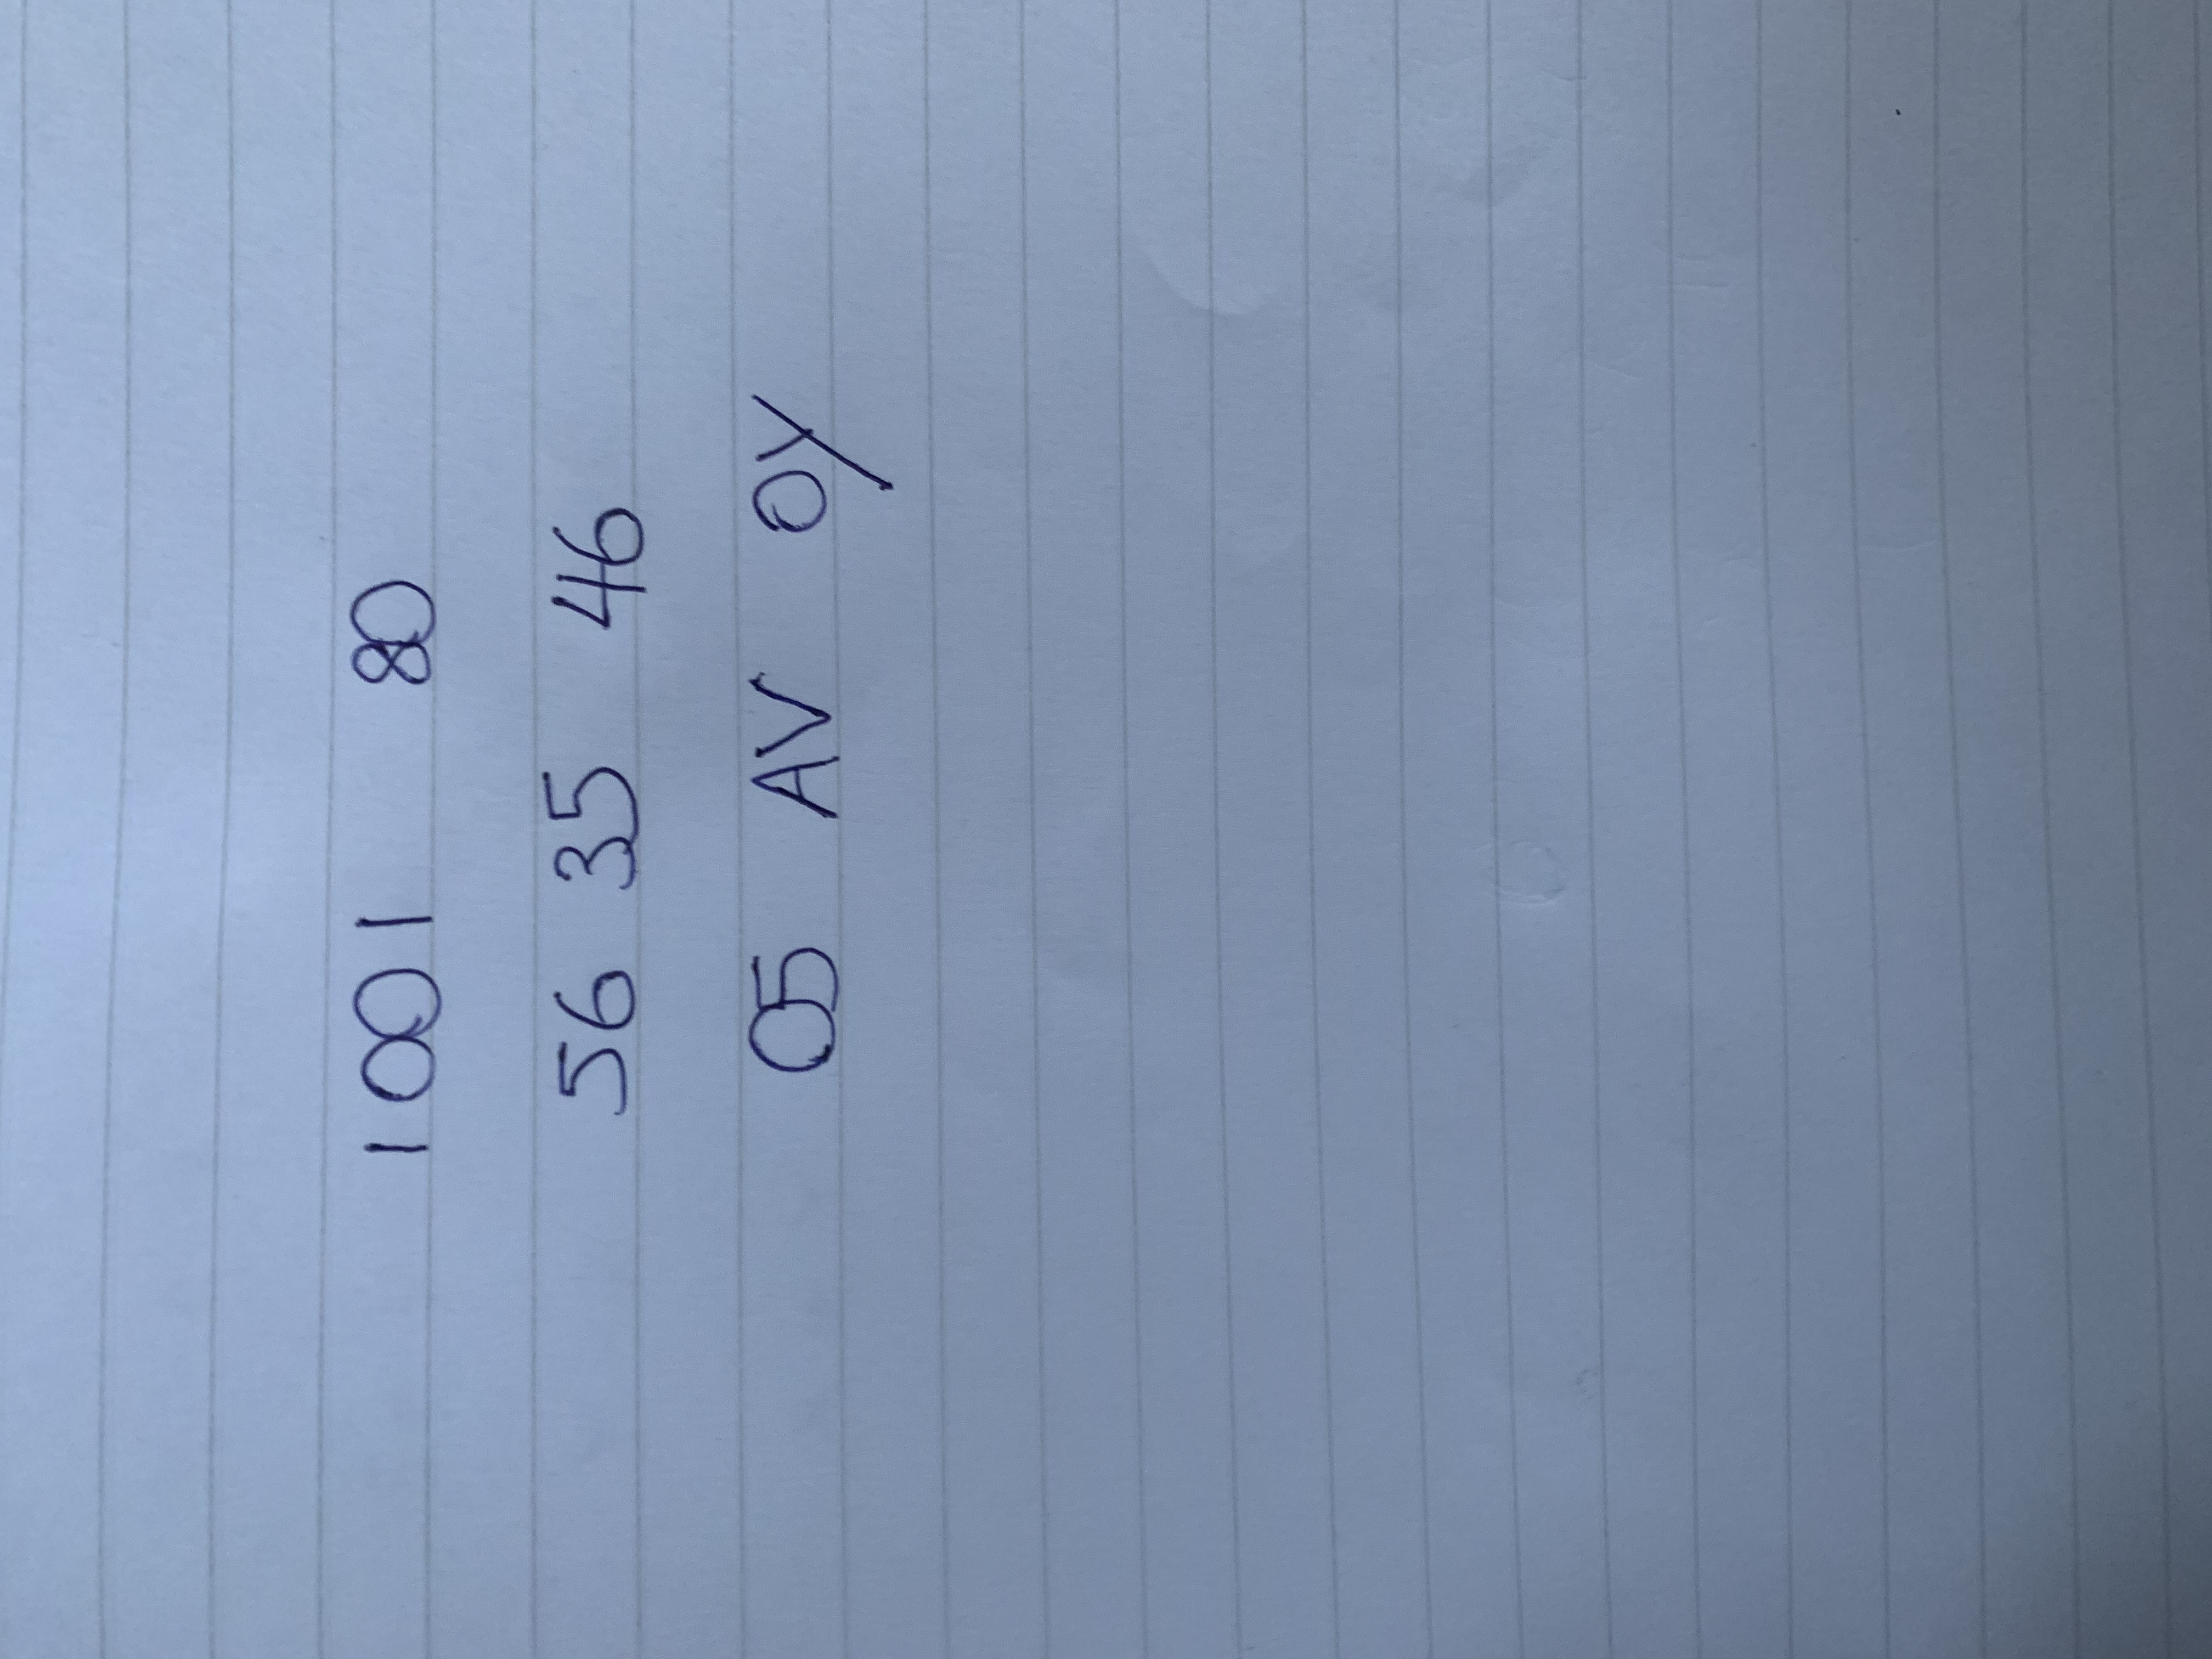 1001 80
56 35 46
05 AV OY